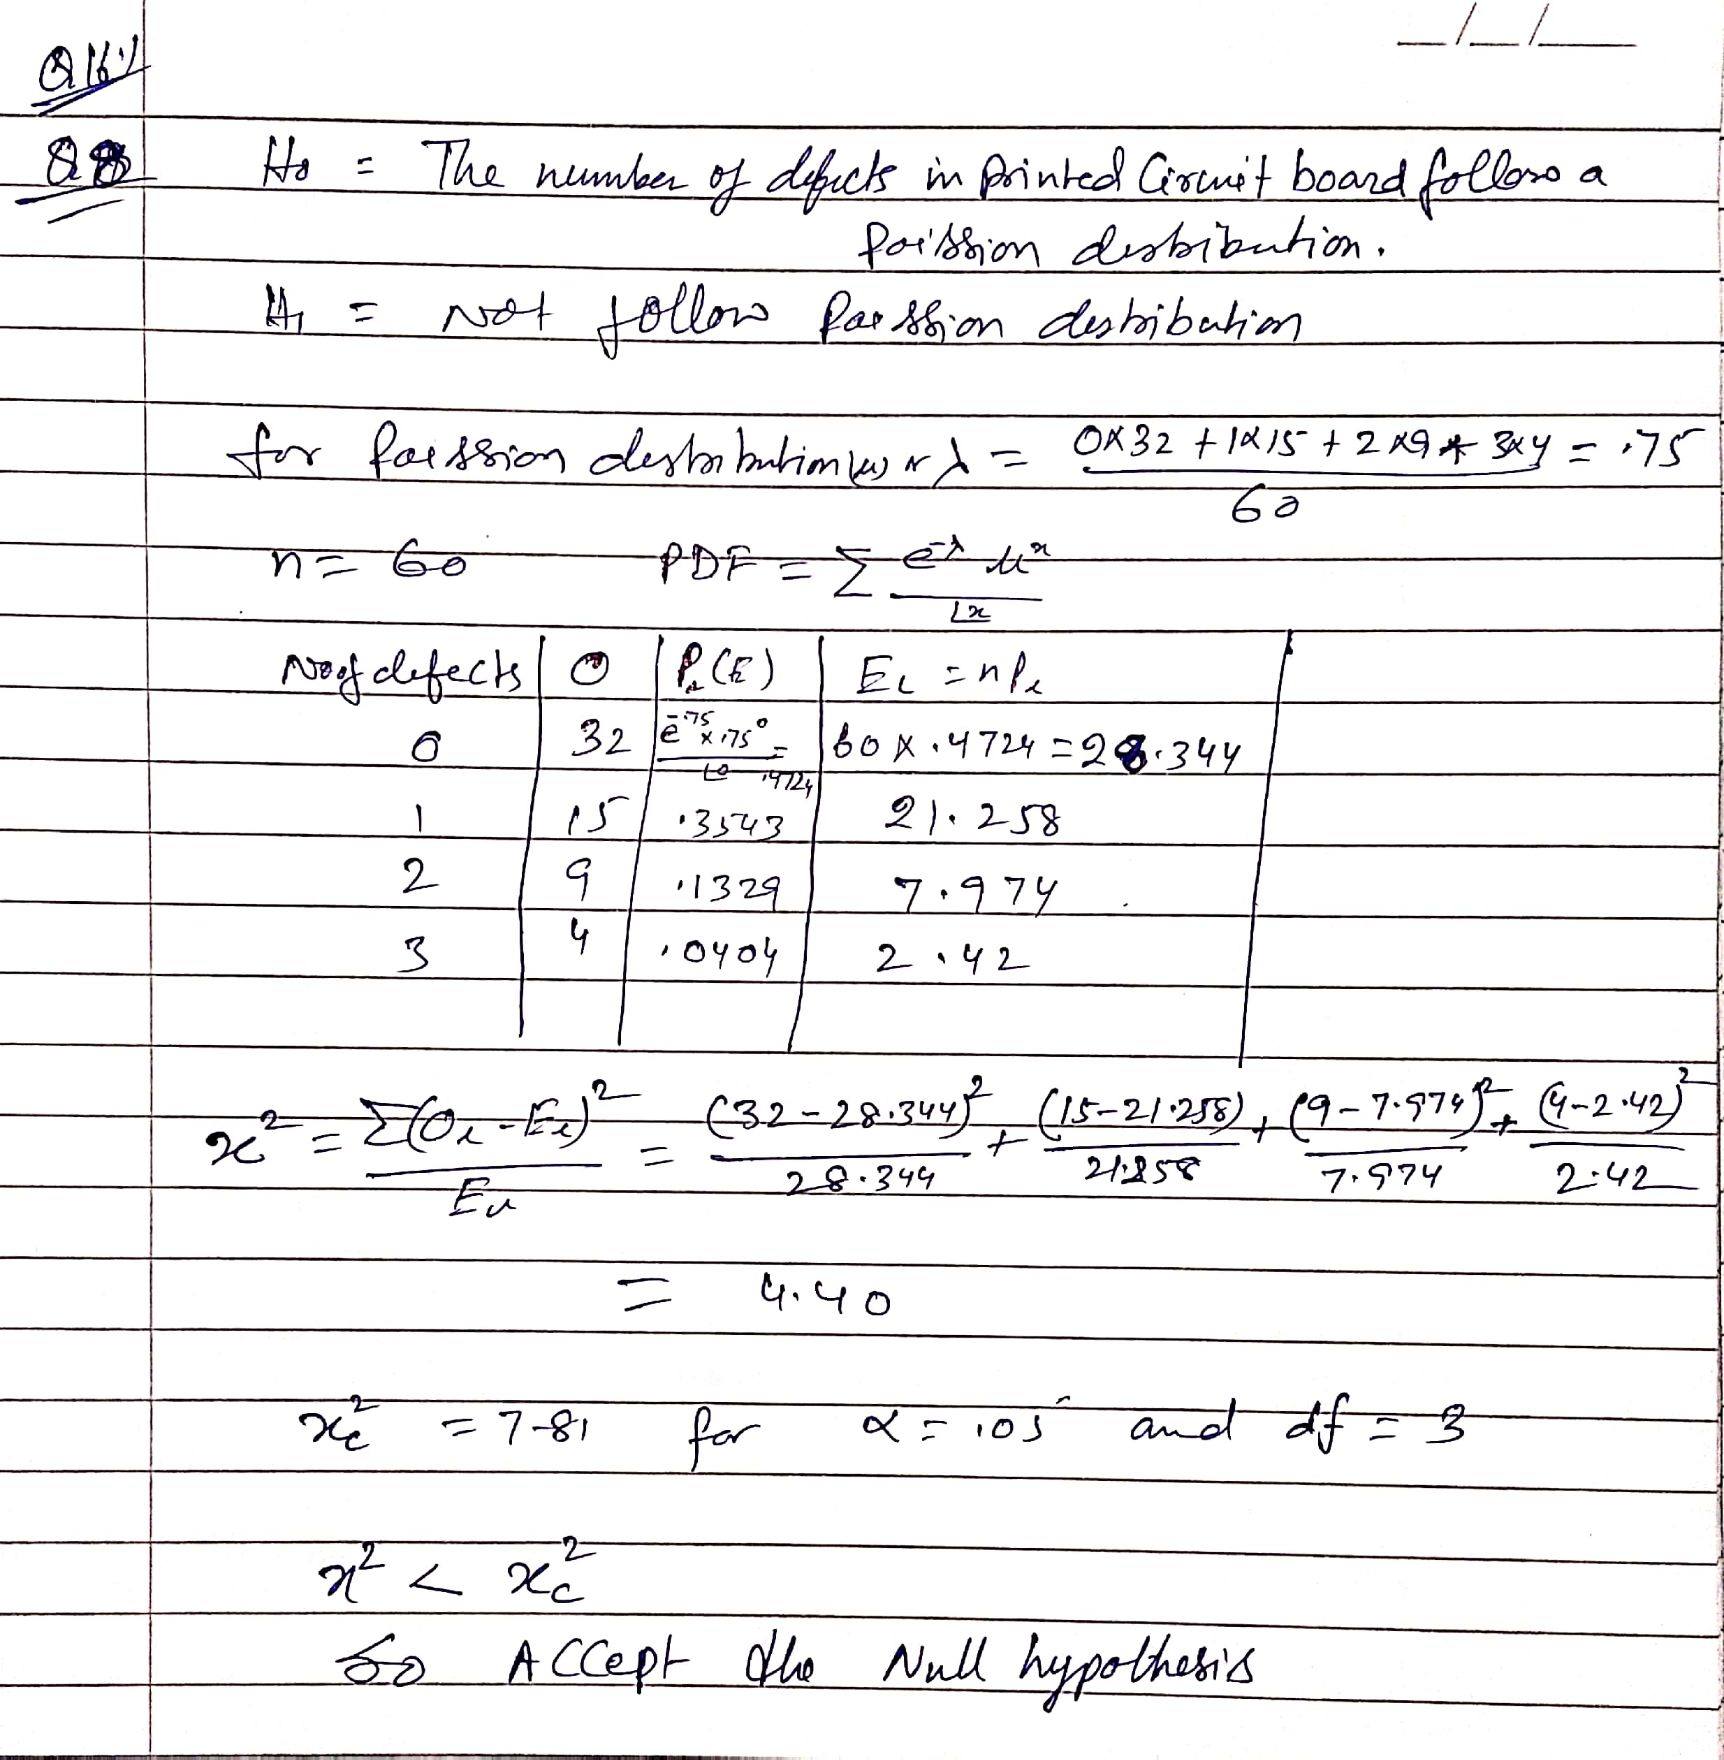 _/_/_
Q 16.)
Q 8 H0 = The number of defects in printed Circuit board follow a
Poission destribution.
H1 = Not follow Paission destribution
for Paission destribution (μ) or λ = (0×32 + 1×15 + 2×9 + 3×4)/60 = .75
n = 60 PDF = Σ e^-λ μ^x / ⌊x
No of defects | O | Pi(E) | Ei = nPi
0 | 32 | e^-.75 × .75^0 / ⌊0 = .4724 | 60 × .4724 = 28.344
1 | 15 | .3543 | 21.258
2 | 9 | .1329 | 7.974
3 | 4 | .0404 | 2.42
x² = Σ(Oi - Ei)²/Ei = (32-28.344)²/28.344 + (15-21.258)/21.258 + (9-7.974)²/7.974 + (4-2.42)²/2.42
= 4.40
xc² = 7.81 for α = .05 and df = 3
x² < xc²
So Accept the Null hypothesis